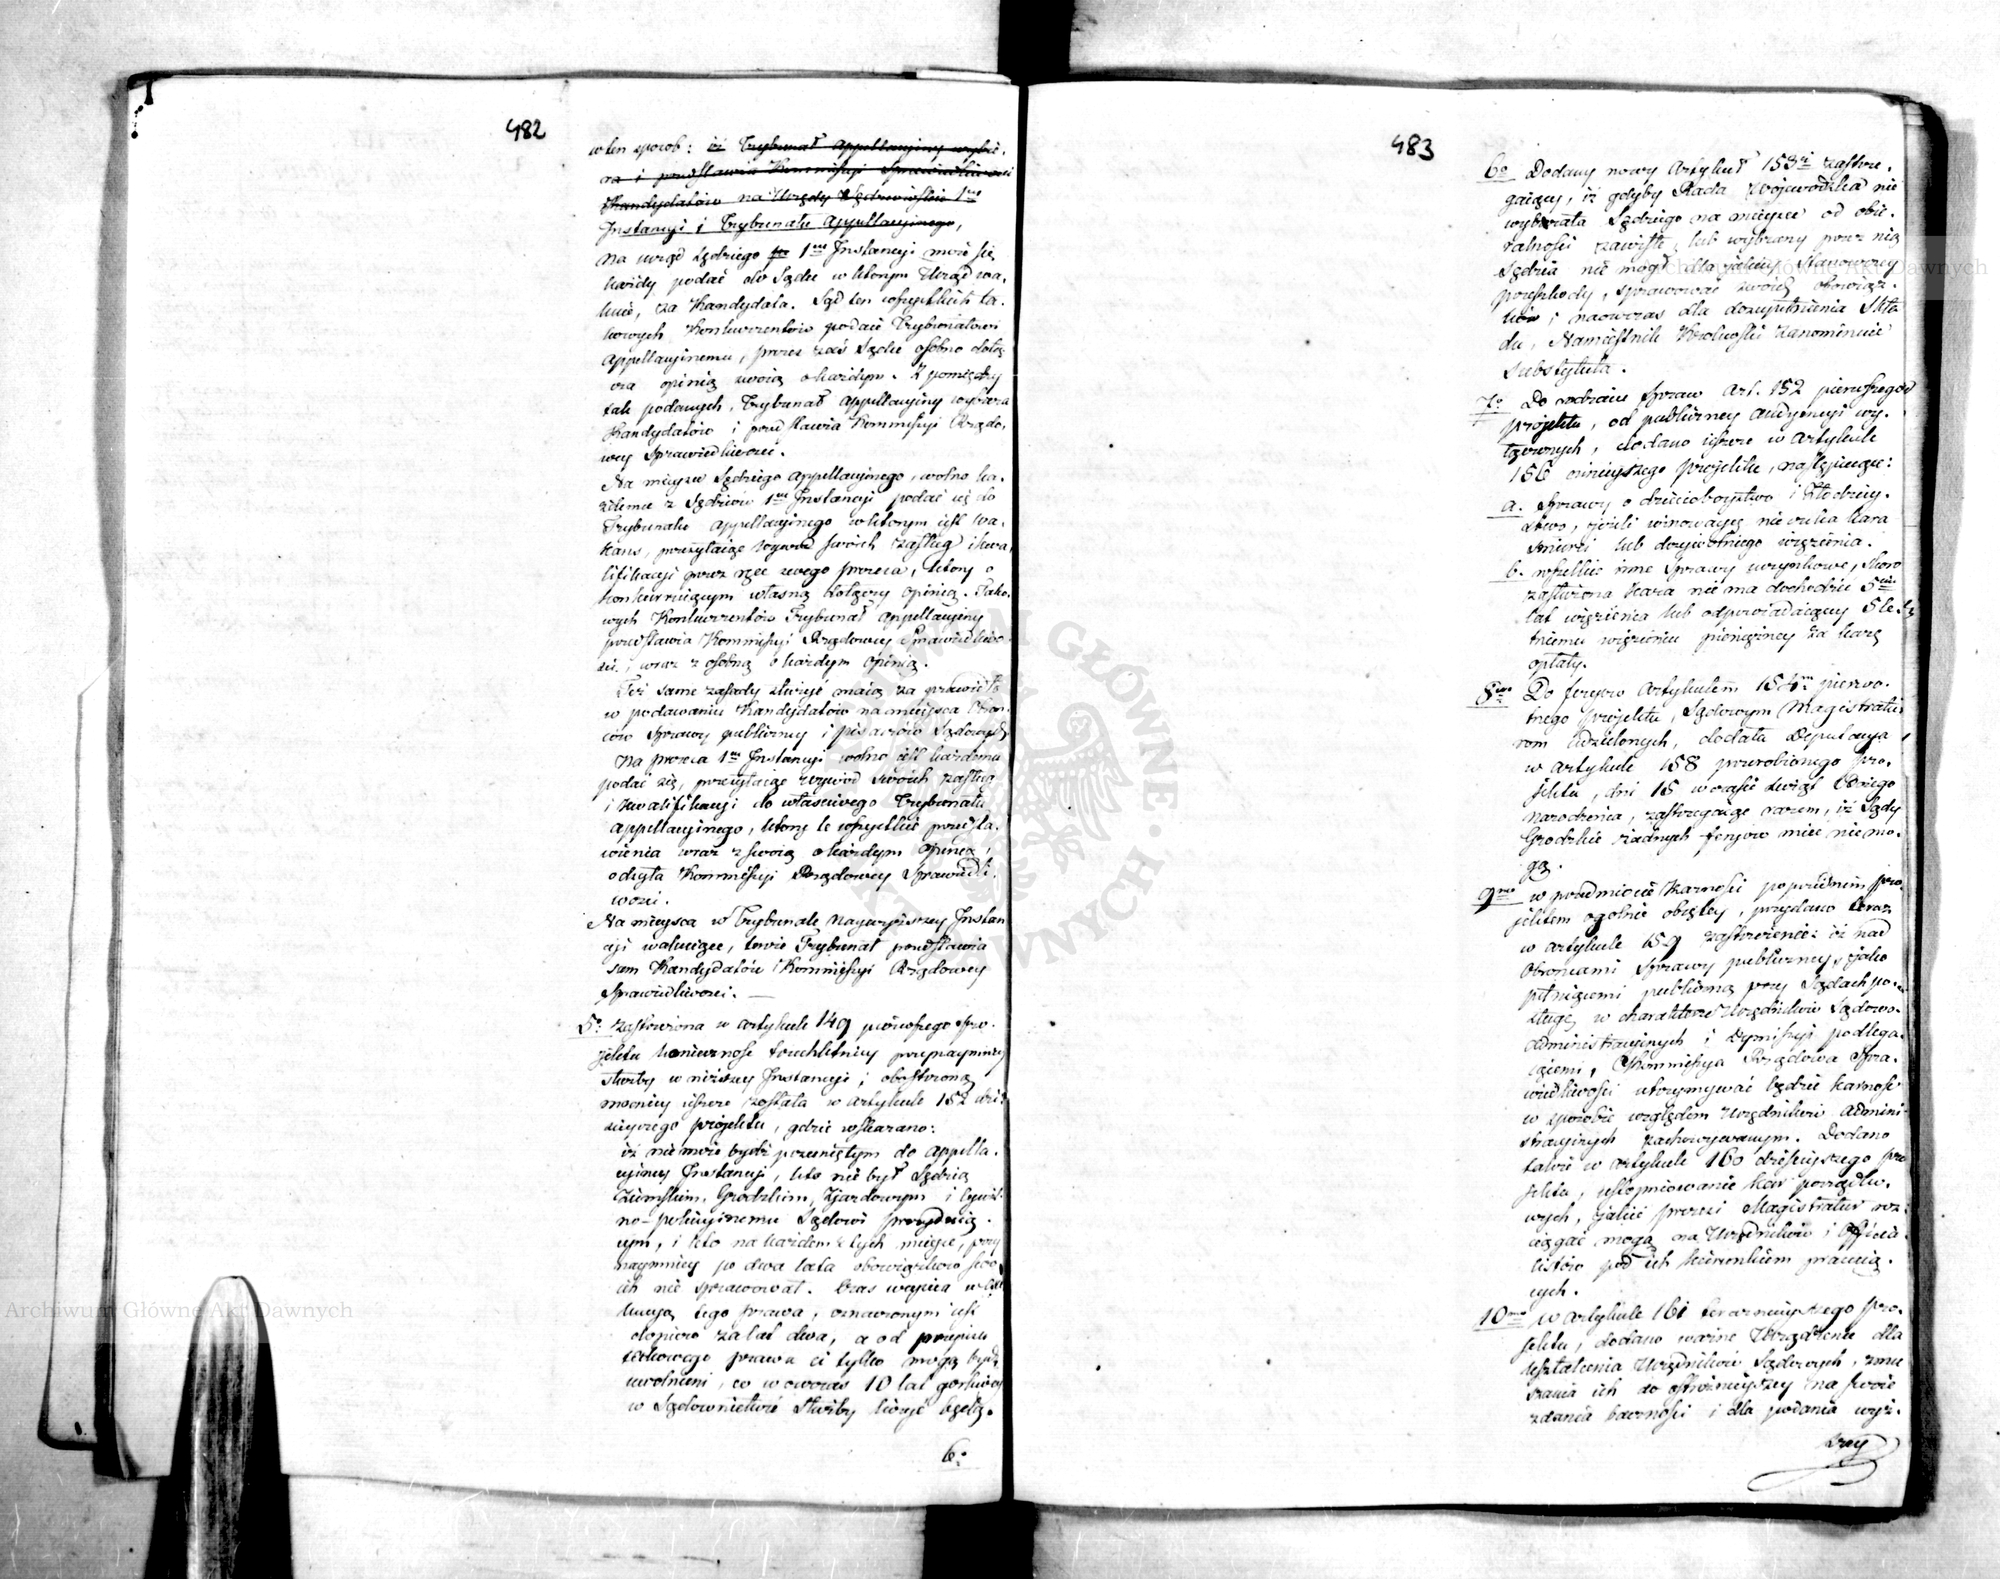 482
w ten sposob: iż Trybunał Appellacyiny wybie-
ra i przedstawia Kommissyi Sprawiedliwości
Kandydatów na Urzędy Sędziowskie 1ey
Instancyi i Trybunału Appellacyinego,
na urząd Sędziego 1ey Instancyi może się
każdy podać do Sądu w którym Urząd wa-
kuie, za Kandydata. Sąd ten wszystkich ta-
kowych Konkurrentów podaie Trybunałowi
Appellacyinemu, prezes zaś Sądu osobno dołą-
cza opinią swoią o każdym. Z pomiędzy
tak podanych, Trybunał Appellacyiny wybiera
Kandydatów i przedstawia Kommissyi Rządo-
wey Sprawiedliwości.
Na mieysce Sędziego Appellacyinego, wolno ka-
żdemu z Sędziów 1ey Instancyi podać się do
Trybunału Appellacyinego w którym iest wa-
kans, przesyłaiąc wywód swoich zasług i kwa-
lifikacyi przez ręce swego prezesa, który o
konkurruiącym własną dołączy opinią. Tako-
wych Konkurrentów Trybunał Appellacyiny
przedstawia Kommissyi Rządowey Sprawiedliwo-
ści, wraz z osobną o każdym opinią.
Też same zasady służyć maią za prawidło
w podawaniu Kandydatów na mieysca Obroń-
ców Sprawy publiczney i pisarzów Sądowych.
Na prezesa 1ey Instancyi wolno iest każdemu
podać się, przesyłaiąc wywód swoich zasług
i kwalifikacyi do właściwego Trybunału
Appellacyinego, który te wszystkie przedsta-
wienia wraz z swoią o każdym opinią,
odsyła Kommissyi Rządowey Sprawiedli-
wości.
Na mieysca w Trybunale Naywyższey Instan-
cyi wakuiące, tenże Trybunał przedstawia
sam Kandydatów Kommissyi Rządowey
Sprawiedliwości. —
5o zastrzeżona w artykule 149 pierwszego Pro-
jektu konieczność trzechletniey przynaymniey
służby w niższey Instancyi; obostrzoną
mocniey ieszcze została w artykule 152 dzi-
sieyszego projektu, gdzie wskazano:
iż nie może bydź przeniętym do Appella-
cyiney Instancyi, kto nie był Sędzią
Ziemskim, Grodzkim, Zjazdowym i Cywil-
no-policyinemu Sądowi prezyduią-
cym, i kto na każdem z tych mieysc, przy
naymniey po dwa lata obowiązków swo-
ich nie sprawował. Czas weyścia w Exe-
kucyą tego prawa, oznaczonym iest
dopiero za lat dwa, a od przepisu
takowego prawa ci tylko mogą bydź
uwolnieni, co w owczas 10 lat gorliwey
w Sądownictwie Służby liczyć będą.
6o
483
6o Dodany nowy Artykuł 153ci zastrze-
gaiący, iż gdyby Rada Woiewódzka nie
wybrała Sędziego na mieysce od obie-
ralności zawisłe, lub wybrany przez nią
Sędzia nie mógł dla iakiey stanowczey
przeszkody, sprawować swoich obowiąz-
ków; naowczas dla dozupełnienia Skła-
du, Namiestnik Królewski zanominuie
Substytuta.
7o Do rodzaiu Spraw Art. 152 pierwszego
projektu, od publiczney audyencyi wy-
łączonych, dodano ieszcze w Artykule
156 ninieyszego projektu, następuiące:
a. Sprawy o dzieciobóystwo i Złodziey-
stwo, ieżeli winowaycę nie czeka kara
śmierci lub dożywotniego więzienia.
b. wszelkie inne Sprawy uczynkowe, skoro
zasłużona kara nie ma dochodzić 5ciu
lat więzienia lub odpowiadaiącey 5 le-
tniemu więzieniu pieniężney za karę
opłaty.
8vo Do feryow Artykułem 154m pierwo-
tnego projektu, Sądowym Magistratu-
rom udzielonych, dodała Deputacya
w Artykule 158 przerobionego Pro-
jektu, dni 15 w czasie świąt Bożego
Narodzenia, zastrzegaiąc razem, iż Sądy
Grodzkie żadnych feryow mieć nie mo-
gą.
9no w przedmiocie Karności poprzednim pro-
jektem ogólnie obiętey, przydano teraz
w artykule 159 zastrzeżenie: iż nad
Obrońcami Sprawy publiczney, iako
pełniącemi publiczną przy Sądach po-
sługę w charakterze Urzędników Sądowo-
administracyinych i Dymissyi podlega-
iącemi, Kommissya Rządowa Spra-
wiedliwości utrzymywać będzie karność
w sposobie względem Urzędników admini-
stracyinych zachowywanym. Dodano
także w artykule 160 dzisieyszego pro-
jektu, ustopniowanie kar porządko-
wych, iakie prezesi Magistratur roz-
ciągać mogą na Urzędników i Officia-
listów pod ich kierunkiem pracuią-
cych.
10mo w artykule 161 teraznieyszego Pro-
jektu, dodano ważne Urządzenie dla
kształcenia Urzędników Sądowych, zmu-
szania ich do ostrożnieyszey na swoie
zdania baczności i dla podania wyż-
szey